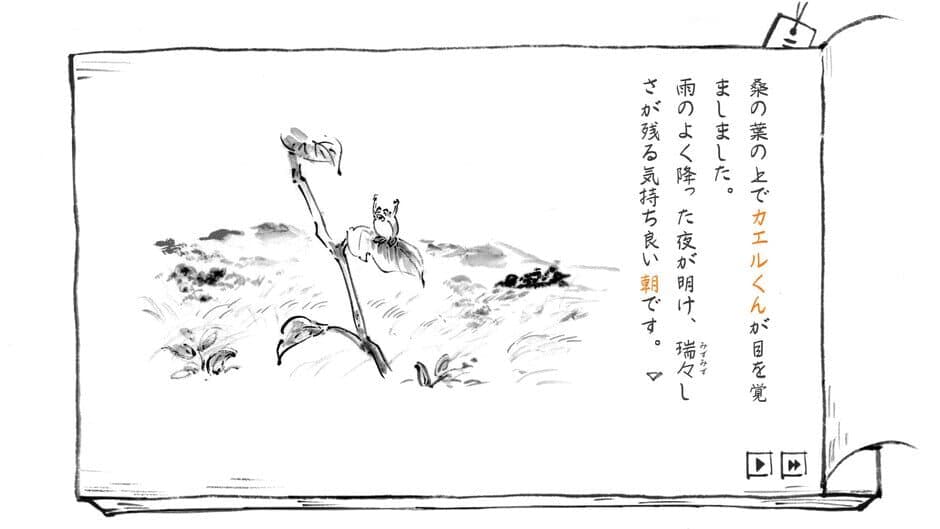 桑の葉の上でカエルくんが目を覚
ましました。
雨のよく降った夜が明け、瑞々し
みずみず
さが残る気持ち良い朝です。